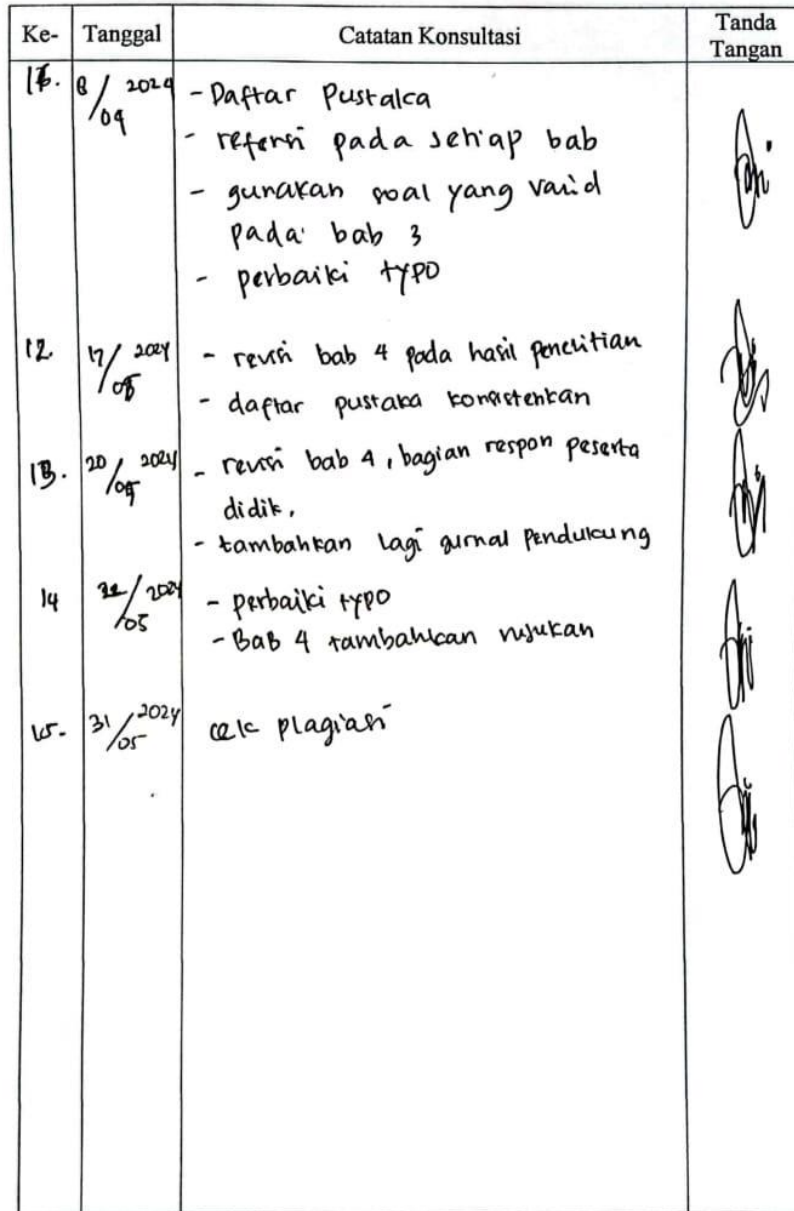 Ke- Tanggal Catatan Konsultasi Tanda Tangan
8/04 2024 - Daftar Pustaka
- referensi pada setiap bab
- gunakan soal yang valid
pada bab 3
- perbaiki typo
12. 17/ 2024 - revisi bab 4 pada hasil penelitian
- daftar pustaka konsistenkan
13. 20/ 2024 - revisi bab 4, bagian respon peserta
didik.
- tambahkan lagi jurnal pendukung
14 /05 2024 - perbaiki typo
- Bab 4 tambahkan rujukan
15. 31/05 2024 cek plagiasi